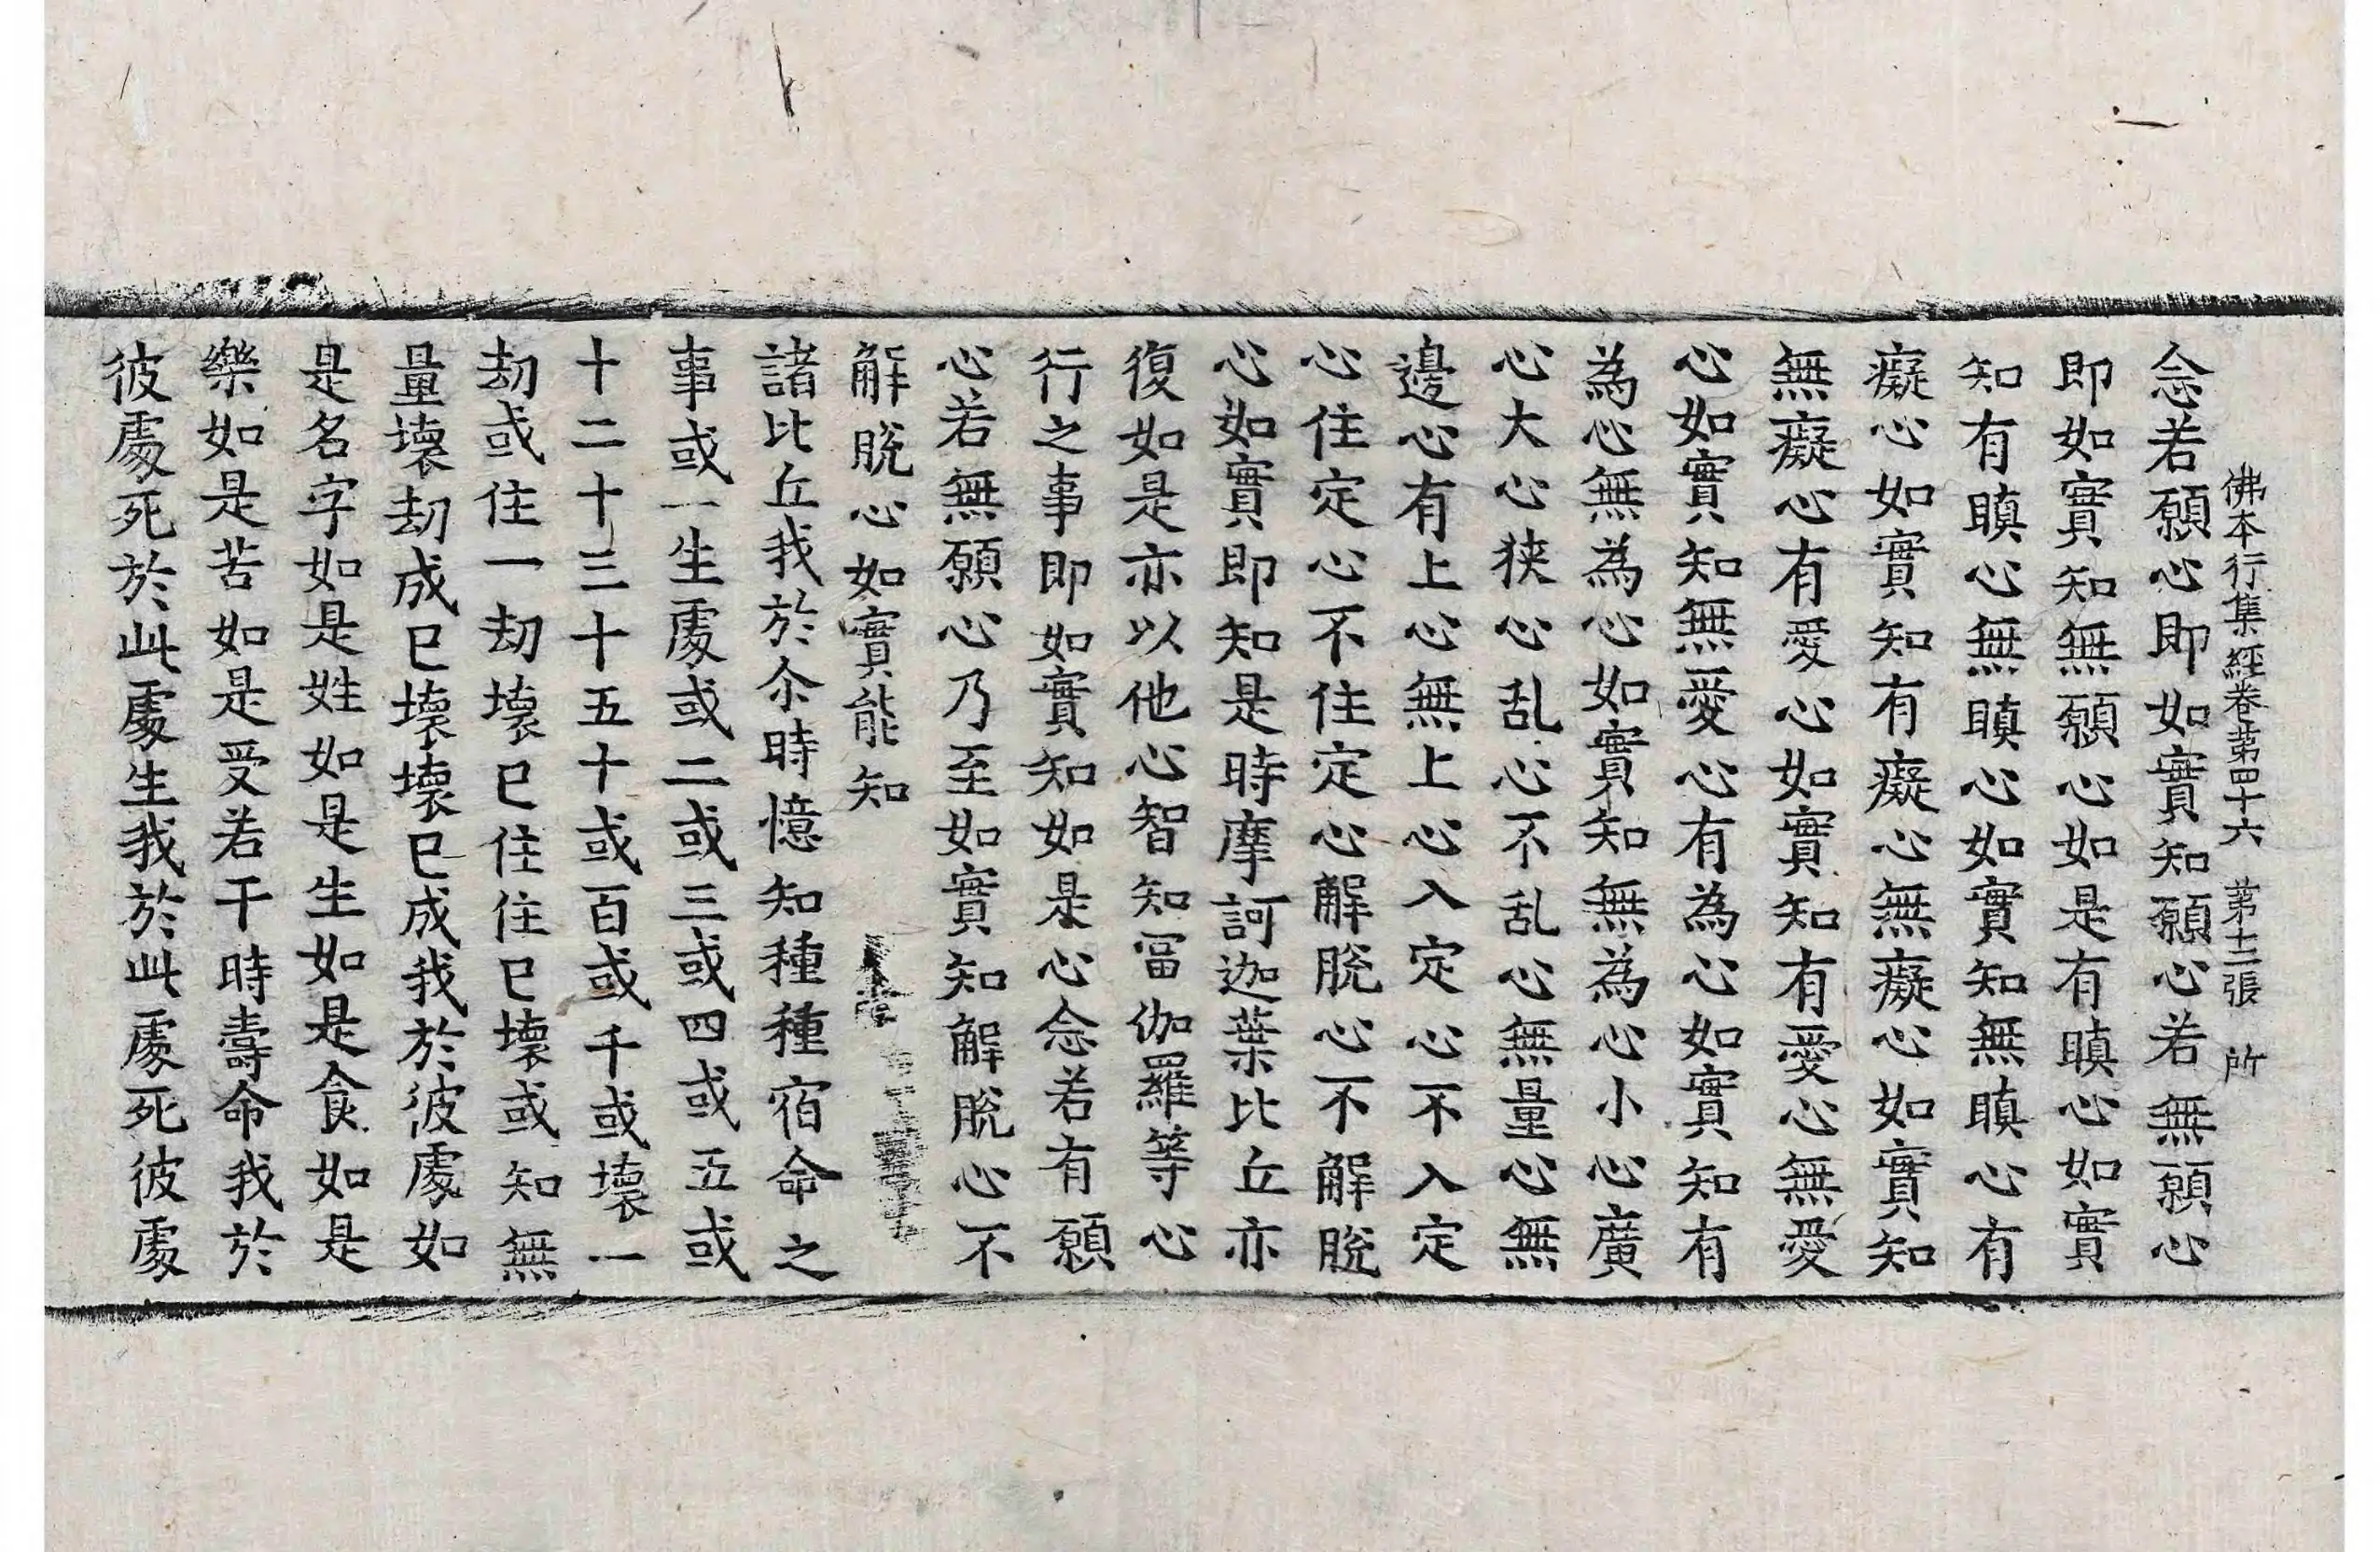 佛本行集經卷第四十六 第十三張 所
念若願心即如實知願心若無願心
即如實知無願心如是有瞋心如實
知有瞋心無瞋心如實知無瞋心有
癡心如實知有癡心無癡心如實知
無癡心有愛心如實知有愛心無愛
心如實知無愛心有為心如實知有
為心無為心如實知無為心小心廣
心大心狹心乱心不乱心無量心無
邊心有上心無上心入定心不入定
心住定心不住定心解脫心不解脫
心如實即知是時摩訶迦葉比丘亦
復如是亦以他心智知富伽羅等心
行之事即如實知如是心念若有願
心若無願心乃至如實知解脫心不
解脫心如實能知
諸比丘我於尒時憶知種種宿命之
事或一生處或二或三或四或五或
十二十三十五十或百或千或壞一
劫或住一劫壞已住住已壞或知無
量壞劫成已壞壞已成我於彼處如
是名字如是姓如是生如是食如是
樂如是苦如是受若干時壽命我於
彼處死於此處生我於此處死彼處